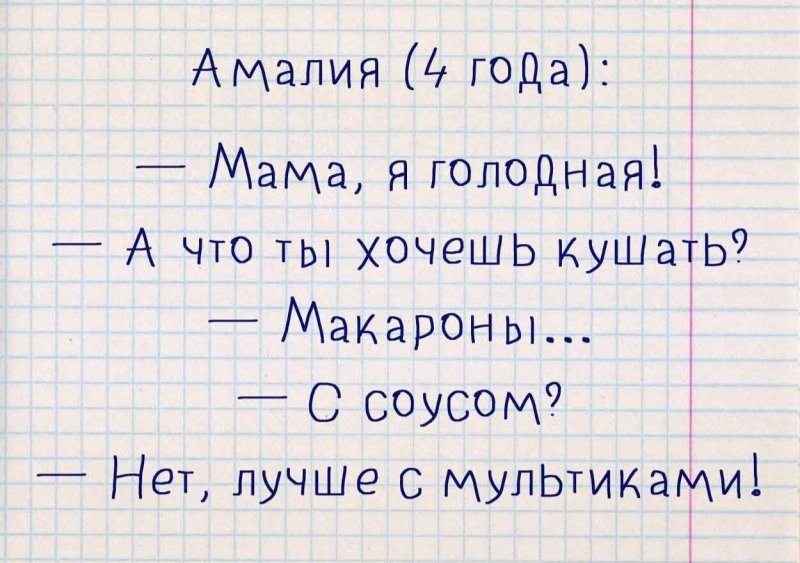 Амалия (4 года):
— Мама, я голодная!
— А что ты хочешь кушать?
— Макароны...
— С соусом?
— Нет, лучше с мультиками!